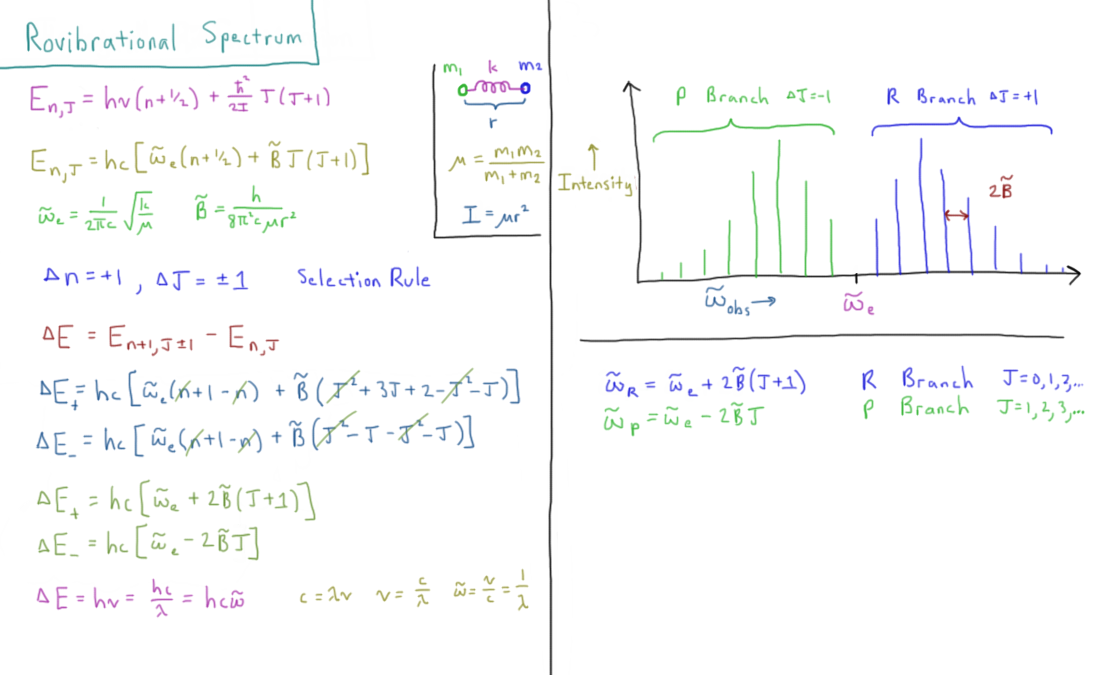 Rovibrational Spectrum
E_{n,J} = hν(n+1/2) + ħ²/2I J(J+1)
E_{n,J} = hc[ω̃_e(n+1/2) + B̃J(J+1)]
ω̃_e = 1/2πc √(k/μ)   B̃ = h/8π²cμr²
Δn = +1, ΔJ = ±1   Selection Rule
ΔE = E_{n+1,J±1} - E_{n,J}
ΔE_+ = hc[ω̃_e(n+1-n) + B̃(J²+3J+2-J²-J)]
ΔE_- = hc[ω̃_e(n+1-n) + B̃(J²-J-J²-J)]
ΔE_+ = hc[ω̃_e + 2B̃(J+1)]
ΔE_- = hc[ω̃_e - 2B̃J]
ΔE = hν = hc/λ = hcω̃   c = λν   ν = c/λ   ω̃ = ν/c = 1/λ
m₁ k m₂
r
μ = m₁m₂/m₁+m₂
I = μr²
P Branch ΔJ=-1   R Branch ΔJ=+1
↑
Intensity
2B̃
ω̃_obs →   ω̃_e
ω̃_R = ω̃_e + 2B̃(J+1)   R Branch J=0,1,2,...
ω̃_P = ω̃_e - 2B̃J   P Branch J=1,2,3,...